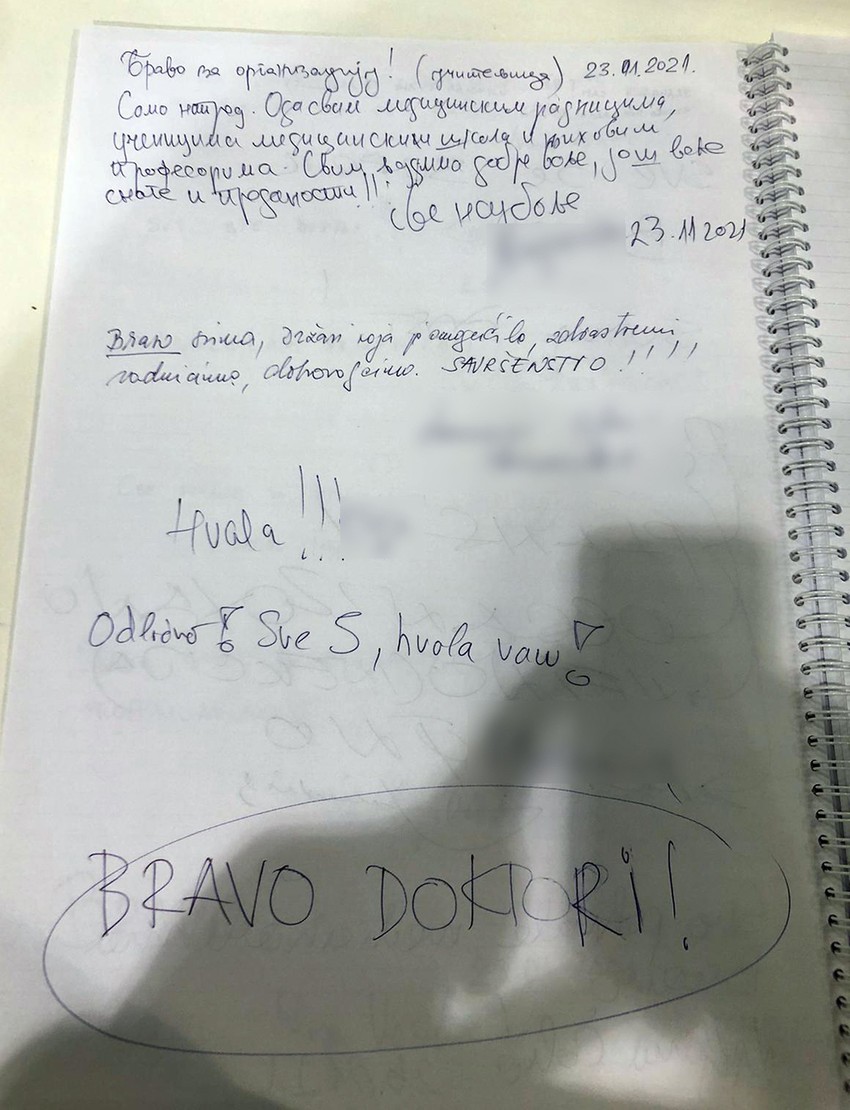 Браво за организацију! (учитељица) 23.11.2021.
Само напред. Ода свим медицинским радницима,
ученицима медицинских школа и њиховим
професорима. Свим људима добре воље, још више
снаге и преданости!!!
Све најбоље
23.11.2021
Bravo svima, državi koja je omogućila,
radnicima, SAVRŠENSTVO!!!!
Hvala!!!
Odlično! Sve 5, hvala vam!
BRAVO DOKTORI!